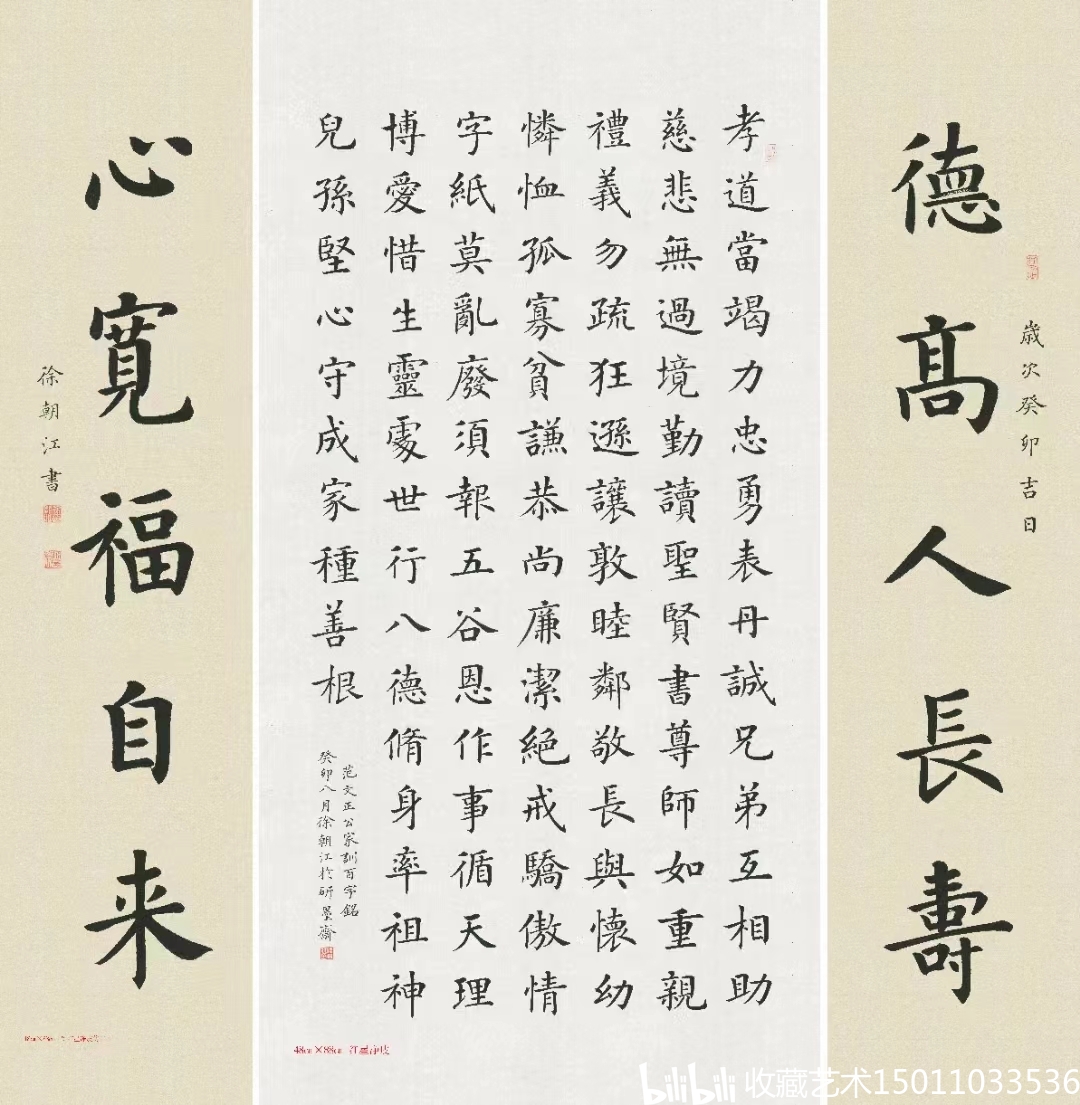 德高人長壽
歲次癸卯吉日
孝道當竭力忠勇表丹誠兄弟互相助
慈悲無過境勤讀聖賢書尊師如重親
禮義勿疏狂遜讓敦睦鄰敬長與懷幼
憐恤孤寡貧謙恭尚廉潔絕戒驕傲情
字紙莫亂廢須報五谷恩作事循天理
博愛惜生靈處世行八德脩身率祖神
兒孫堅心守成家種善根
范文正公家訓百字銘
癸卯八月徐朝江於研墨齋
48cm×88cm 江墨净皮
心寬福自来
徐朝江書
bilibili 收藏艺术15011033536